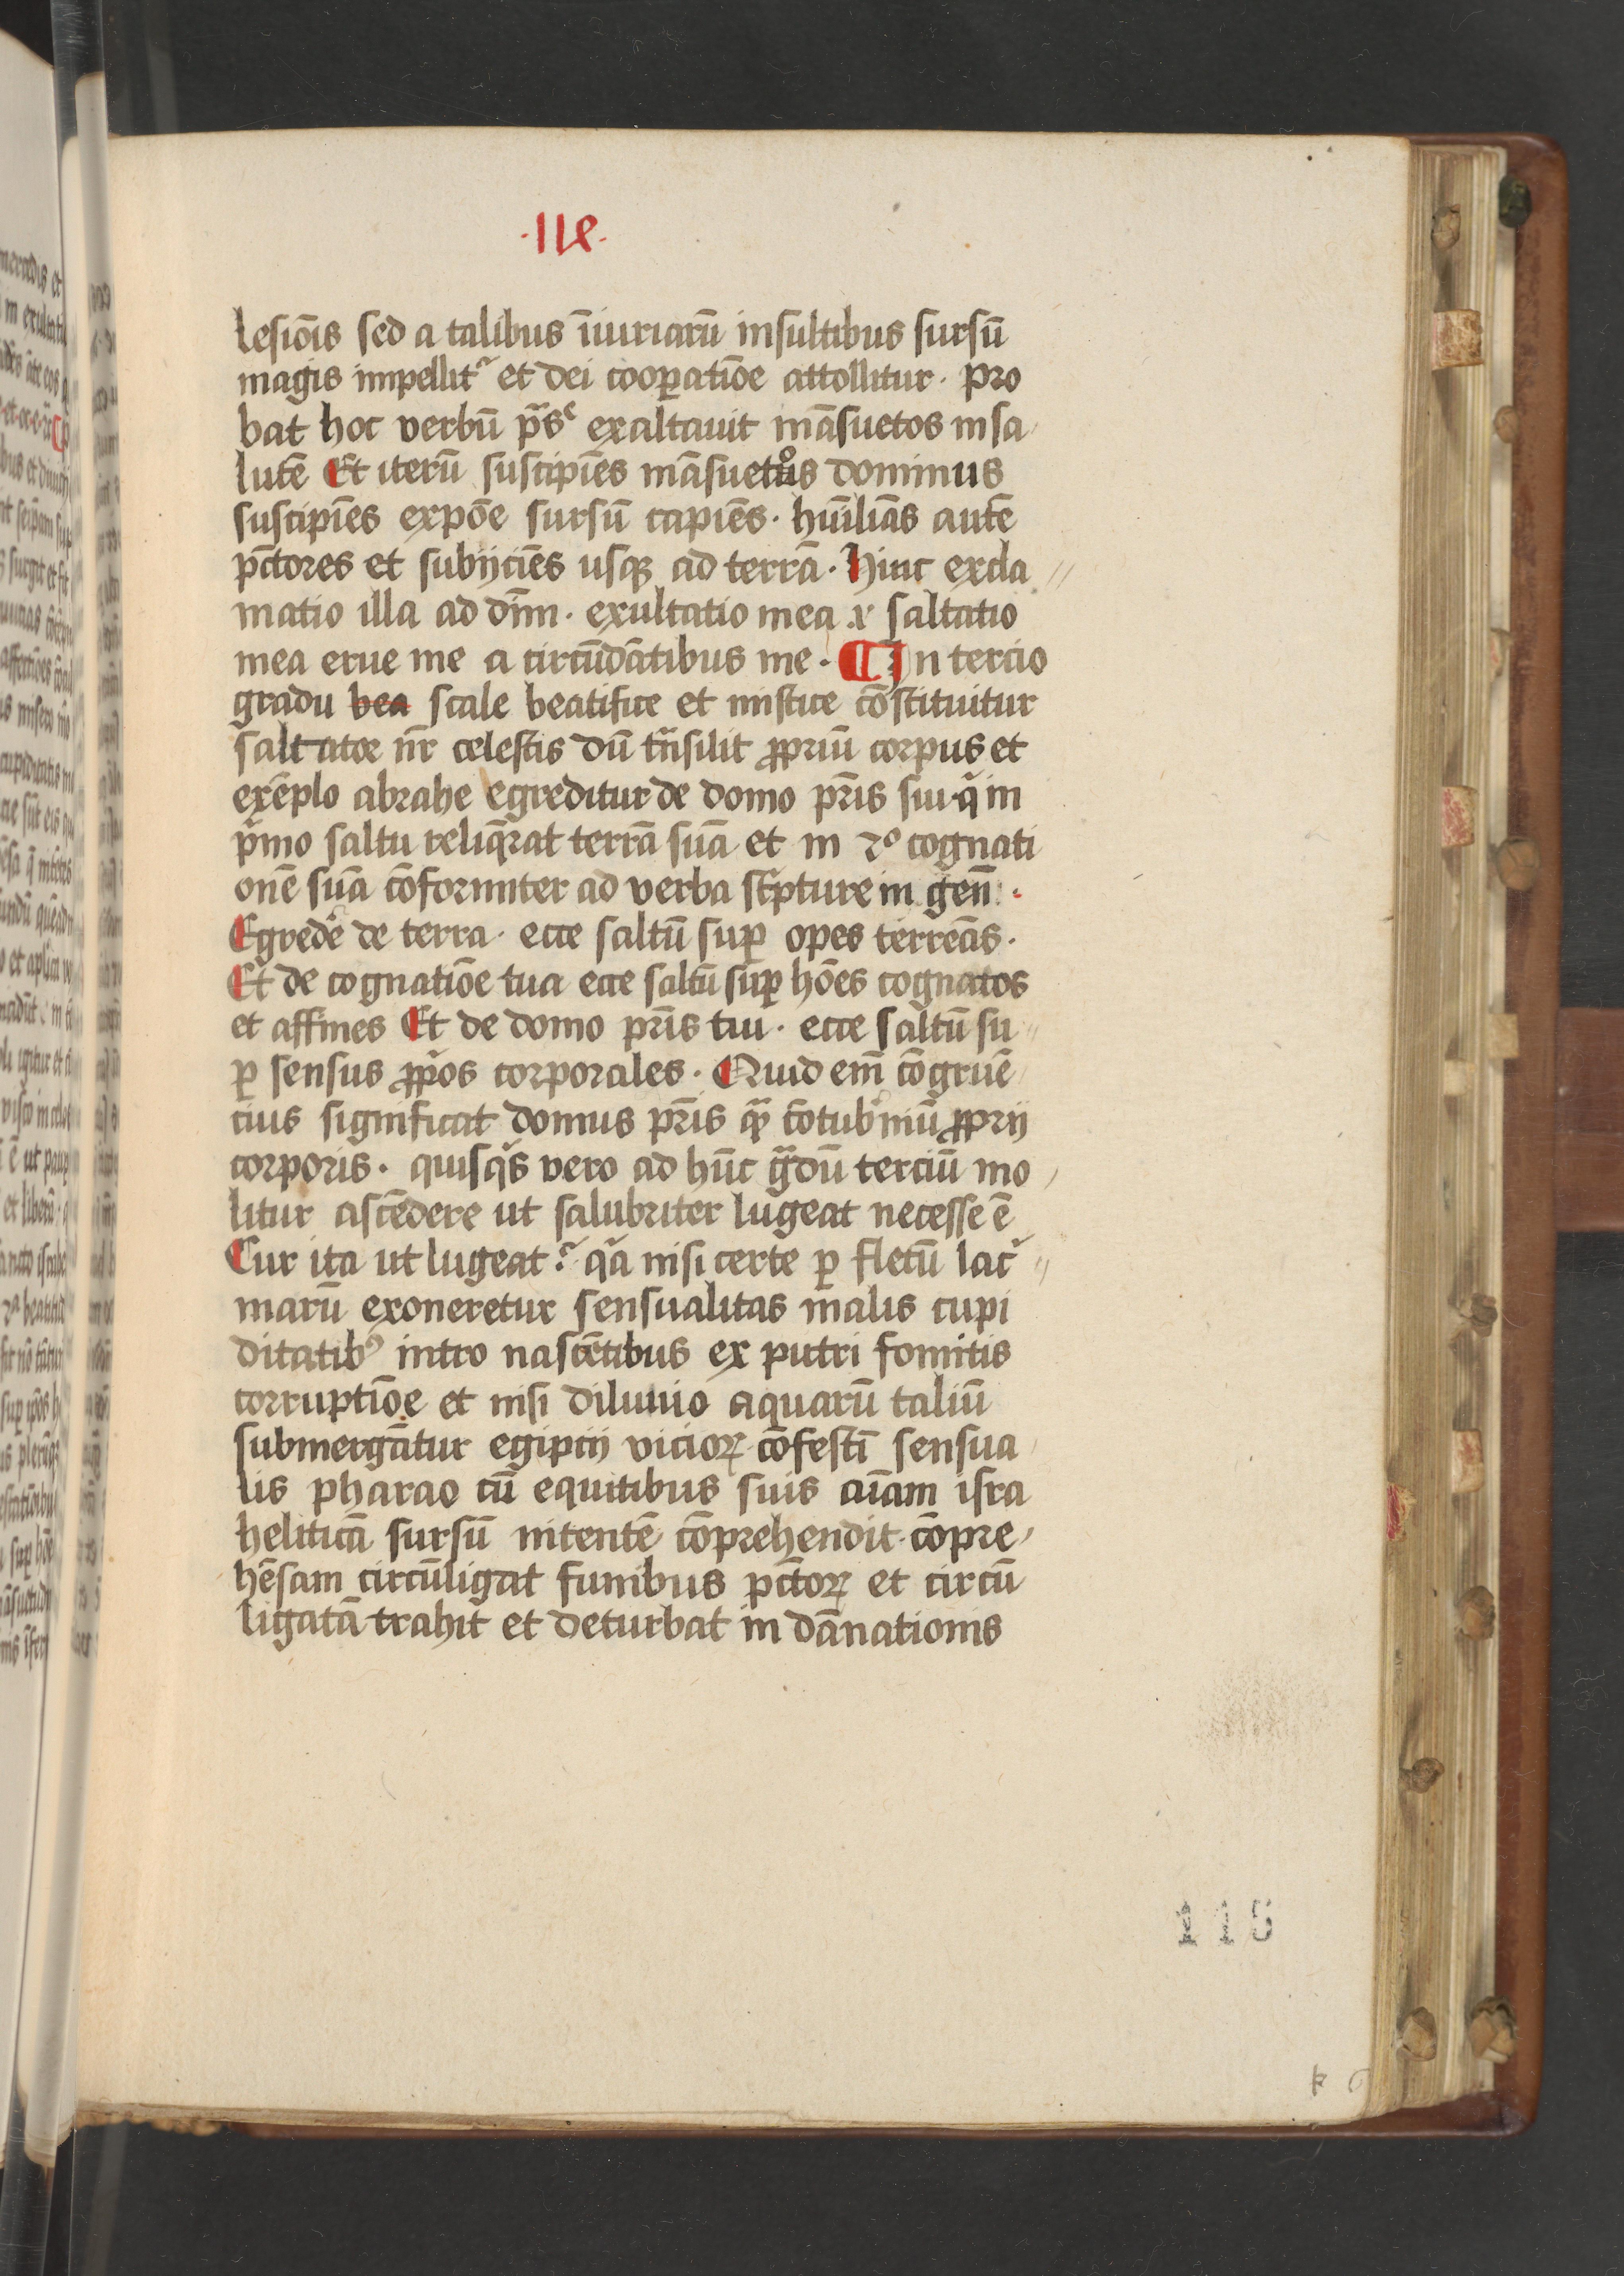 ·119·
lesiōis sed a talibus īiuriarū insultibus sursū
magis impellit᷑ et dei cooꝑatiōe attollitur· pro
bat hoc verbū p̄s exaltauit māsuetos in sa
lutē Et iterū suscipiēs māsuetus dominus
suscipiēs expōe sursū capiēs· hūiliās autē
pctōres et subijciēs usqꝫ ad terrā· Hinc excla
matio illa ad dn̄m· exultatio mea .r. saltatio
mea erue me a circūdātibus me· ¶ In tercio
gradu bea scale beatifice et mistice cōstituitur
saltator nr̄ celestis dū trāsilit ꝓpriū corpus et
exēplo abrahe egreditur de domo pr̄is sui· q̄ in
pͥmo saltu reliqͥrat terrā suā et in 2º cognati
onē suā cōformiter ad verba scͥpture in gen̄·
Egredē de terra· ecce saltū suꝑ opes terreās·
Et de cognatiōe tua ecce saltū suꝑ hōes cognatos
et affines Et de domo pr̄is tui· ecce saltū su
ꝑ sensus ꝓpͥos corporales· Quid em̄ cōgruē
cius significat domus pr̄is qͣꝫ cōtub̄niū ꝓprij
corporis· quisqͥs vero ad hūc gͣdū terciū mo
litur ascēdere ut salubriter lugeat necesse ē
Cur ita ut lugeat? qͣ nisi certe ꝑ fletū lacͥ
marū exoneretur sensualitas malis cupi
ditatibꝰ intro nascētibus ex putri fomitis
corruptiōe et nisi diluuio aquarū taliū
submergātur egiptij vicioꝝ cōfestī sensua
lis pharao cū equitibus suis aīam isra
heliticā sursū nitentē cōprehendit· cōpre
hēsam circūligat funibus pctōꝝ et circū
ligatā trahit et deturbat in dānationis
115
k 6